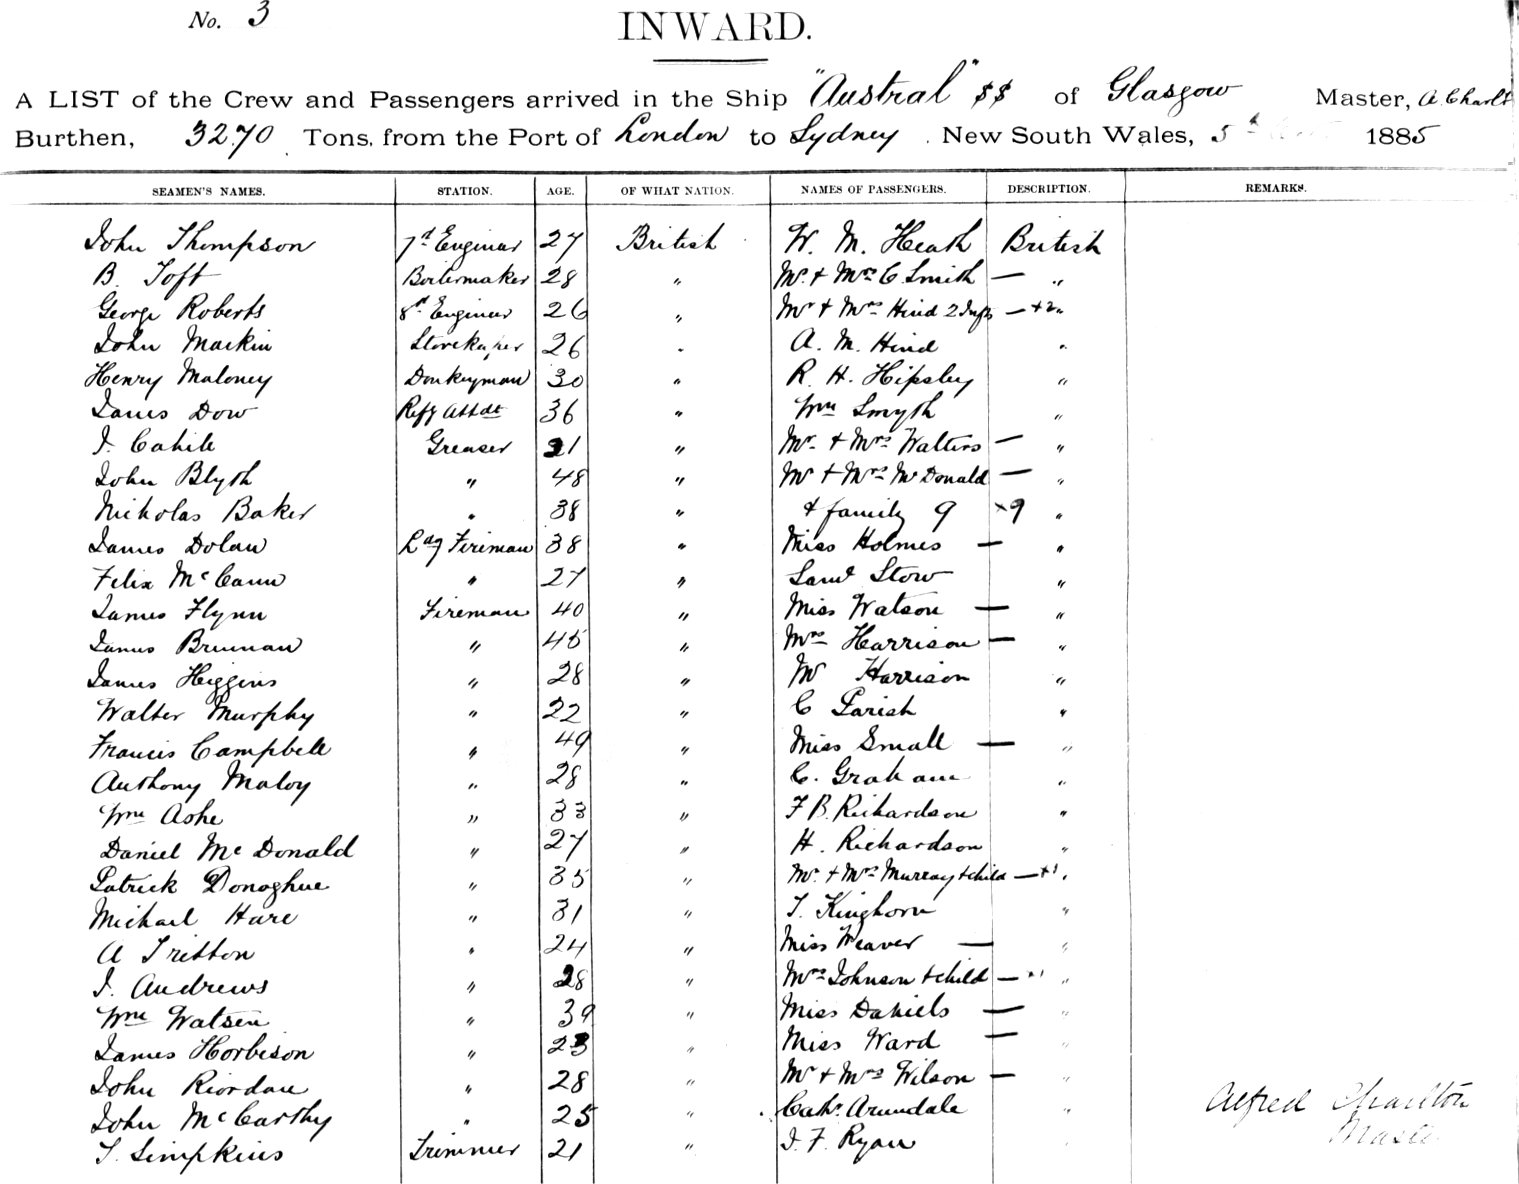 No. 3
INWARD.
A LIST of the Crew and Passengers arrived in the Ship "Austral" SS of Glasgow Master, A. Charlt
Burthen, 3270 Tons, from the Port of London to Sydney. New South Wales, 5th 1885
SEAMEN'S NAMES. STATION. AGE. OF WHAT NATION. NAMES OF PASSENGERS. DESCRIPTION. REMARKS.
John Thompson 7th Engineer 27 British W. M. Heath British
B. Toft Boilermaker 28 " Mr. + Mrs C Smith — "
George Roberts 8th Engineer 26 " Mr + Mrs Hind 2 Infs — +2 "
John Mackin Storekeeper 26 " A. M. Hind "
Henry Maloney Donkeyman 30 " R. H. Hipsley "
James Dow Refg Attdt 36 " Wm Smyth "
J. Cahill Greaser 21 " Mr. + Mrs Walters — "
John Blyth " 48 " Mr + Mrs McDonald — "
Nicholas Baker " 38 " + family 9 +9 "
James Dolan Ldg Fireman 38 " Miss Holmes — "
Felix McCann " 27 " Saml Stow "
James Flynn Fireman 40 " Miss Watson — "
James Brennan " 45 " Mrs Harrison — "
James Higgins " 28 " Mr Harrison "
Walter Murphy " 22 " C Parish "
Francis Campbell " 49 " Miss Small — "
Anthony Maloy " 28 " C. Graham "
Wm Ashe " 33 " F B. Richardson "
Daniel McDonald " 27 " H. Richardson "
Patrick Donoghue " 35 " Mr. + Mrs Murray + child — +1 "
Michael Hare " 31 " T. Kinghorn "
A Tritton " 24 " Miss Weaver — "
J. Andrews " 28 " Mrs Johnson + child — +1 "
Wm Watson " 39 " Miss Daniels — "
James Horbison " 23 " Miss Ward — "
John Riordan " 28 " Mr + Mrs Wilson — "
John McCarthy " 25 " Arundale " Alfred Charlton
T. Simpkins Trimmer 21 " J. F. Ryan " Master